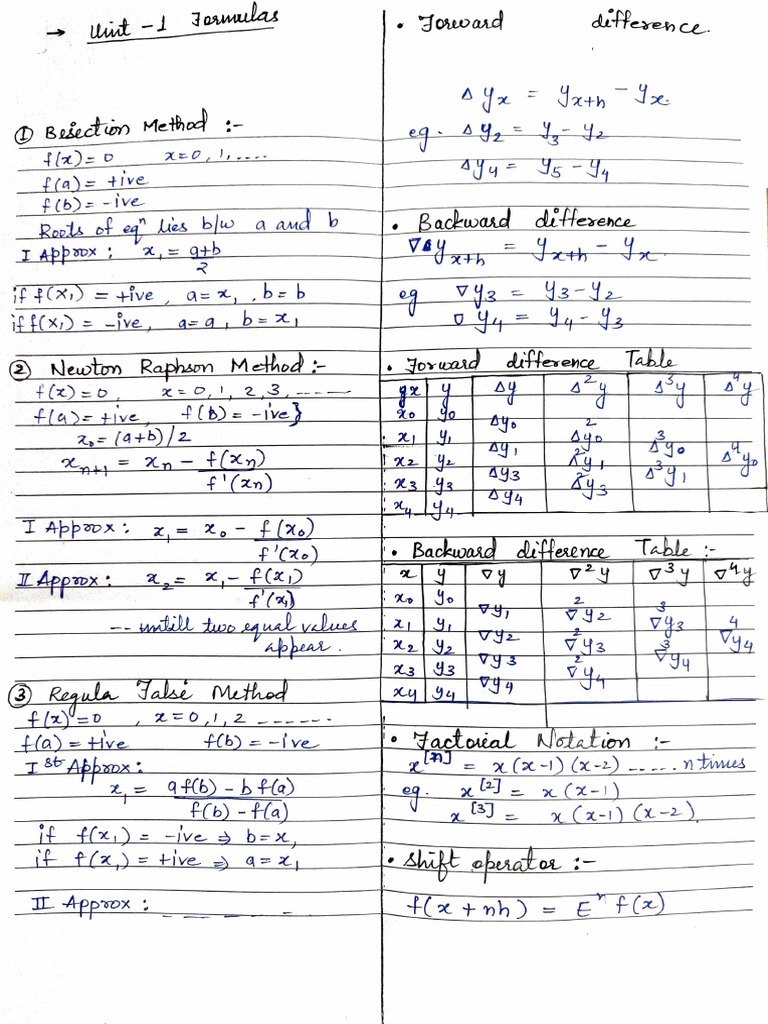 → Unit -1 Formulas
① Besection Method :-
f(x) = 0 x = 0, 1, ....
f(a) = +ive
f(b) = -ive
Roots of eqⁿ lies b/w a and b
I Approx : x₁ = a+b/2
if f(x₁) = +ive, a = x₁, b = b
if f(x₁) = -ive, a = a, b = x₁
② Newton Raphson Method :-
f(x) = 0, x = 0, 1, 2, 3, ------
f(a) = +ive, f(b) = -ive}
x₀ = (a+b)/2
xₙ₊₁ = xₙ - f(xₙ)/f'(xₙ)
I Approx : x₁ = x₀ - f(x₀)/f'(x₀)
II Approx : x₂ = x₁ - f(x₁)/f'(x₁)
-- untill two equal values
appear.
③ Regula Falsé Method
f(x) = 0, x = 0, 1, 2 -------
f(a) = +ive f(b) = -ive
I st Approx :
x₁ = af(b) - bf(a)/f(b) - f(a)
if f(x₁) = -ive ⇒ b = x₁
if f(x₁) = +ive ⇒ a = x₁
II Approx : _ _ _ _
• Forward difference.
Δyₓ = yₓ₊ₕ - yₓ.
eg. Δy₂ = y₃ - y₂
Δy₄ = y₅ - y₄
• Backward difference
∇yₓ₊ₕ = yₓ₊ₕ - yₓ.
eg ∇y₃ = y₃ - y₂
∇y₄ = y₄ - y₃
• Forward difference Table
x y Δy Δ²y Δ³y Δ⁴y
x₀ y₀
Δy₀
x₁ y₁ Δ²y₀
Δy₁ Δ³y₀
x₂ y₂ Δ²y₁ Δ⁴y₀
Δy₃ Δ³y₁
x₃ y₃ Δ²y₃
Δy₄
x₄ y₄
• Backward difference Table :-
x y ∇y ∇²y ∇³y ∇⁴y
x₀ y₀
∇y₁
x₁ y₁ ∇²y₂
∇y₂ ∇³y₃
x₂ y₂ ∇²y₃ ∇⁴y₄
∇y₃ ∇³y₄
x₃ y₃ ∇²y₄
∇y₄
x₄ y₄
• Factorial Notation :-
x^[n] = x(x-1)(x-2) ..... n times
eg. x^[2] = x(x-1)
x^[3] = x(x-1)(x-2).
• Shift operator :-
f(x + nh) = Eⁿ f(x)